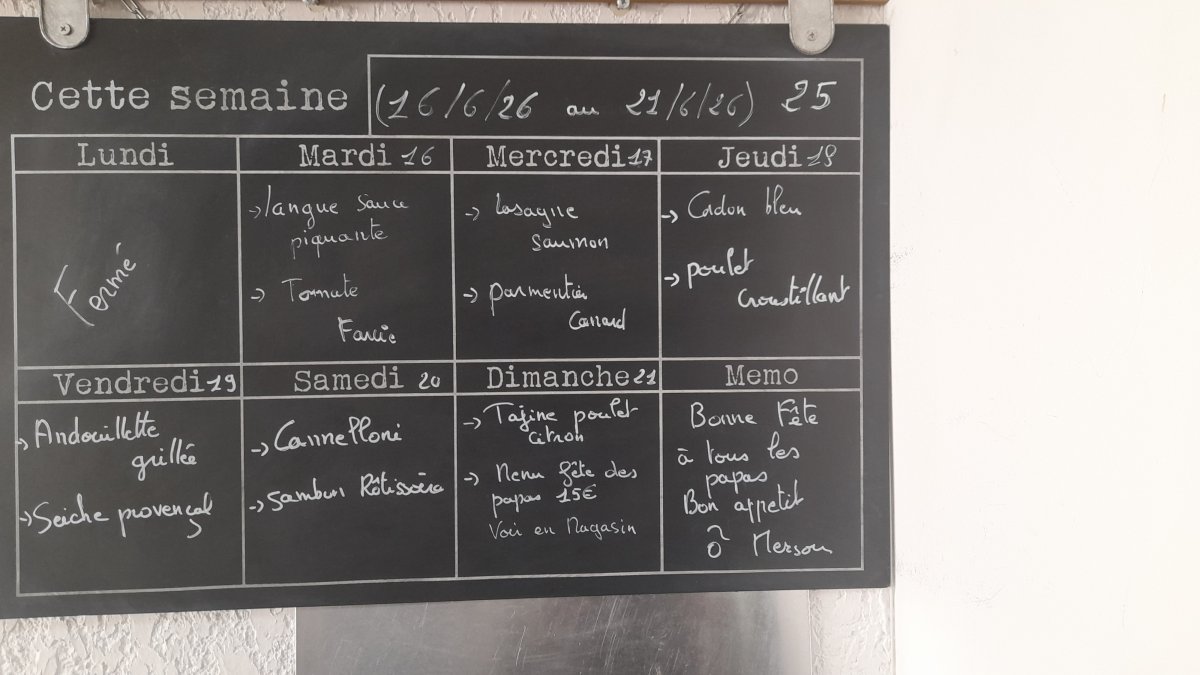 Cette semaine (16/6/26 au 21/6/26) 25
Lundi
Fermé
Mardi 16
→ langue sauce
piquante
→ Tomate
Farcie
Mercredi 17
→ lasagne
saumon
→ parmentier
Canard
Jeudi 18
→ Cordon bleu
→ poulet
croustillant
Vendredi 19
→ Andouillette
grillée
→ Seiche provençal
Samedi 20
→ Cannelloni
→ Jambon Rôtissoire
Dimanche 21
→ Tajine poulet
citron
→ Menu fête des
papas 15€
Voir en Magasin
Memo
Bonne Fête
à tous les
papas
Bon appetit
Ô Mersou